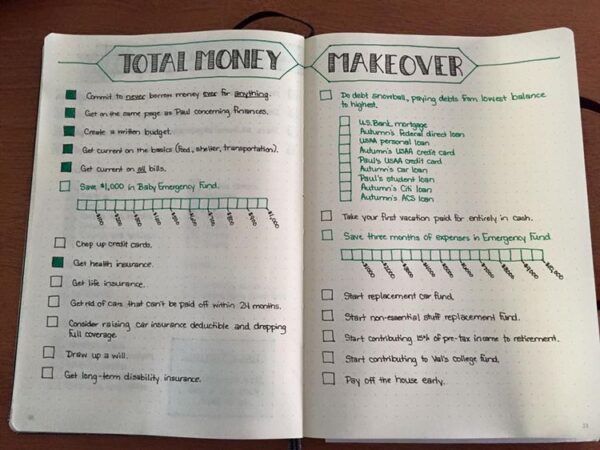 TOTAL MONEY
Commit to never borrow money ever for anything.
Get on the same page as Paul concerning finances.
Create a written budget.
Get current on the basics (food, shelter, transportation).
Get current on all bills.
Save $1,000 in Baby Emergency Fund.
$100 $200 $300 $400 $500 $600 $700 $800 $900 $1,000
Chop up credit cards.
Get health insurance.
Get life insurance.
Get rid of cars that can't be paid off within 24 months.
Consider raising car insurance deductible and dropping
full coverage.
Draw up a will.
Get long-term disability insurance.
MAKEOVER
Do debt snowball, paying debts from lowest balance
to highest.
U.S. Bank mortgage
Autumn's federal direct loan
USAA personal loan
Autumn's USAA credit card
Paul's USAA credit card
Autumn's car loan
Paul's student loan
Autumn's Citi loan
Autumn's ACS loan
Take your first vacation paid for entirely in cash.
Save three months of expenses in Emergency Fund.
$1000 $2000 $3000 $4000 $5000 $6000 $7000 $8000 $9000 $10,000
Start replacement car fund.
Start non-essential stuff replacement fund.
Start contributing 15% of pre-tax income to retirement.
Start contributing to Val's college fund.
Pay off the house early.